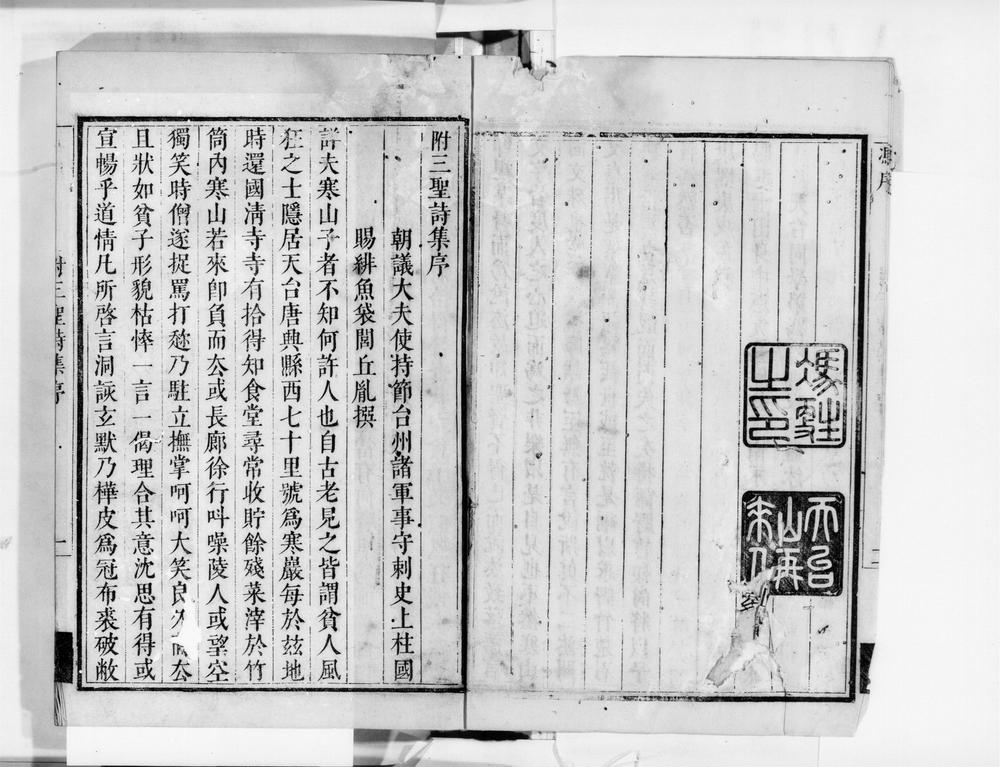 馮序
二
附三聖詩集序
朝議大夫使持節台州諸軍事守刺史上柱國
賜緋魚袋閭丘胤撰
詳夫寒山子者不知何許人也自古老見之皆謂貧人風
狂之士隱居天台唐興縣西七十里號爲寒巖每於茲地
時還國清寺寺有拾得知食堂尋常收貯餘殘菜滓於竹
筒內寒山若來卽負而厺或長廊徐行叫噪陵人或望空
獨笑時僧遂捉罵打趂乃駐立撫掌呵呵大笑良久而厺
且狀如貧子形貌枯悴一言一偈理合其意沈思有得或
宣暢乎道情凡所啓言洞諏玄默乃樺皮爲冠布裘破敝
附三聖詩集序
一